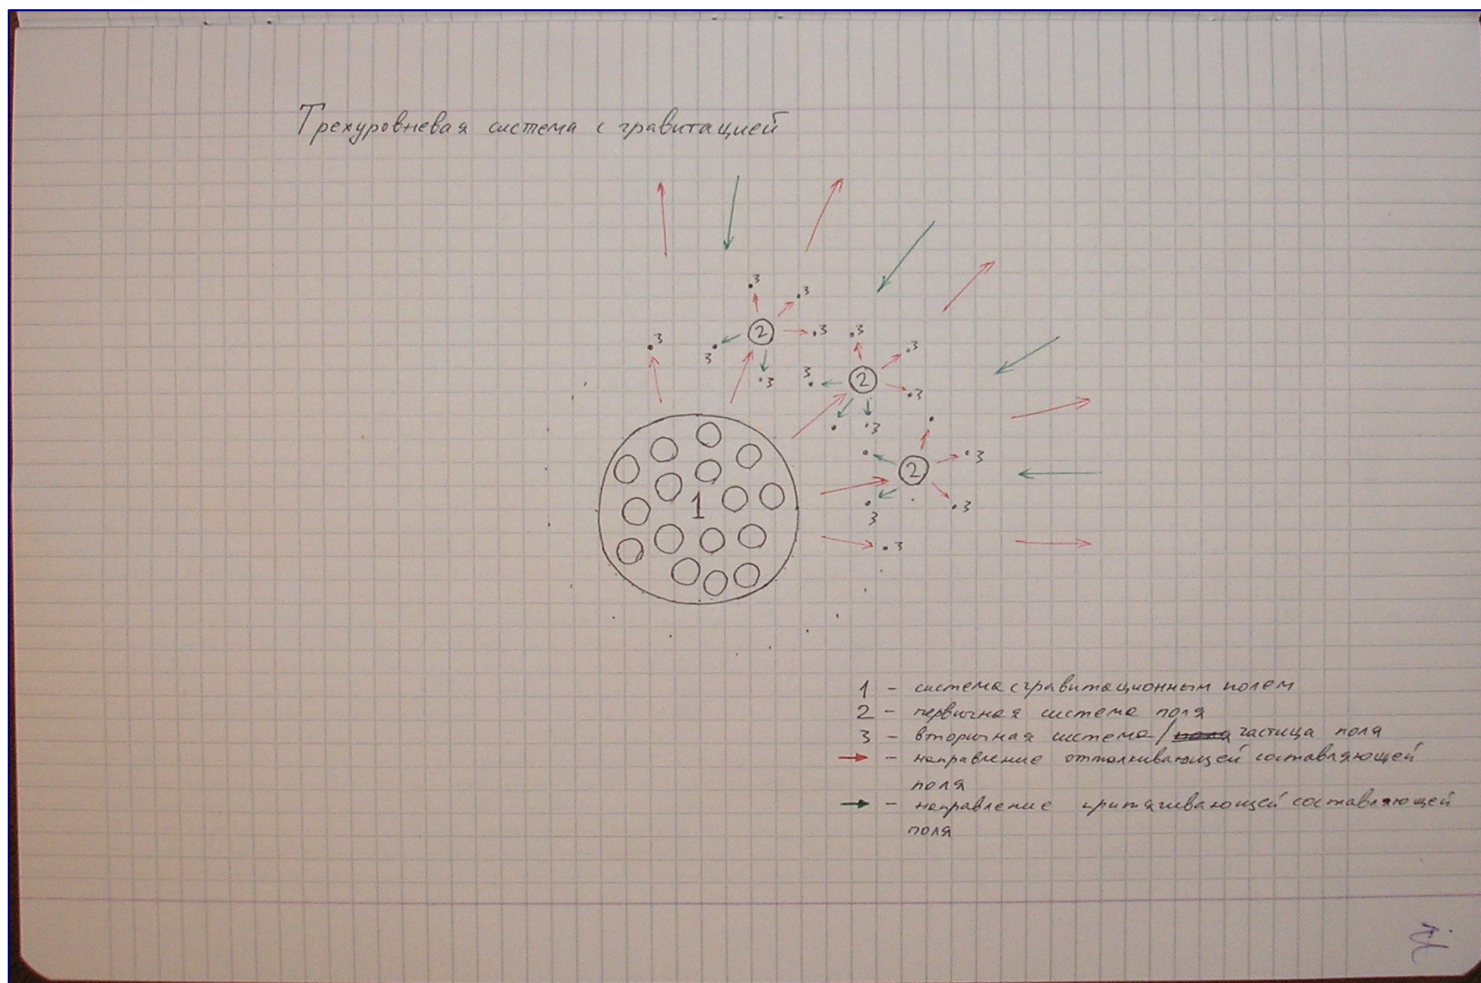 Трехуровневая система с гравитацией
3
3
3
2
3
3
3
3
3
3
2
3
3
3
2
3
3
3
3
1
1 - система с гравитационным полем
2 - первичная система поля
3 - вторичная система/частица поля
- направление отталкивающей составляющей
поля
- направление притягивающей составляющей
поля